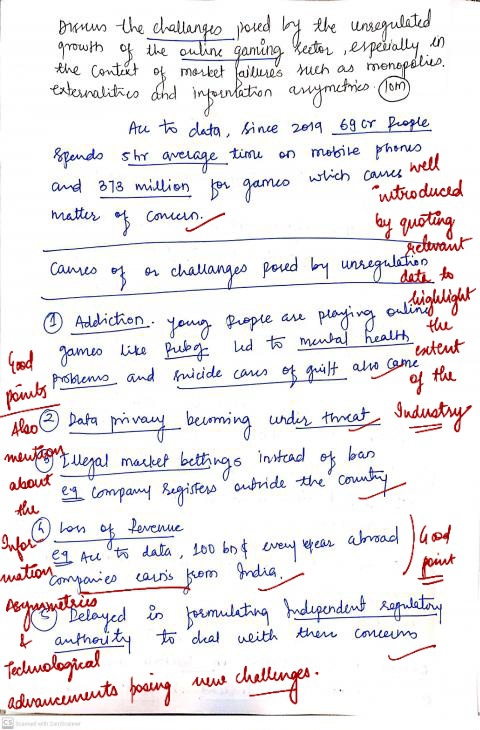 Discuss the challanges posed by the unregulated
growth of the online gaming sector, especially in
the context of market failures such as monopolies.
externalities and information assymetrics. 10m
Acc to data, since 2019 69 cr people
spends 5 hr average time on mobile phones
and 373 million for games which causes
matter of concern.
well
introduced
by quoting
relevant
data to
highlight
the
extent
of the
Industry
Causes of or challanges posed by unregulation
① Addiction. young people are playing online
games like Pubg led to mental health
problems and suicide cases of guilt also came
Good
points
② Data privacy becoming under threat
③ Illegal market bettings instead of ban
eg company registers outside the country
④ Loss of Revenue
eg Acc to data, 100 bn$ every year abroad
companies earns from India.
Good
point
⑤ Delayed in formulating Independent regulatory
authority to deal with these concerns
Also
mention
about
the
Infor
mation
Asymmetrics
&
Technological
advancements posing new challenges.
CS Scanned with CamScanner